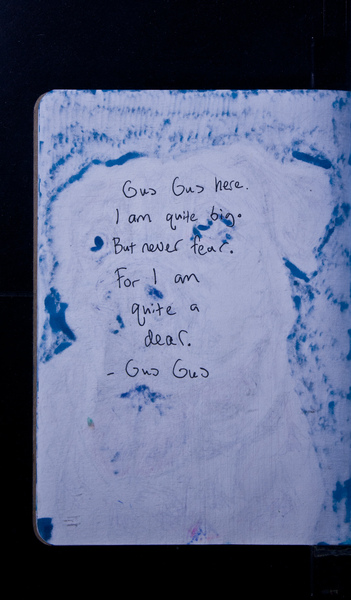 Gus Gus here.
I am quite big.
But never fear.
For I am
quite a
dear.
- Gus Gus